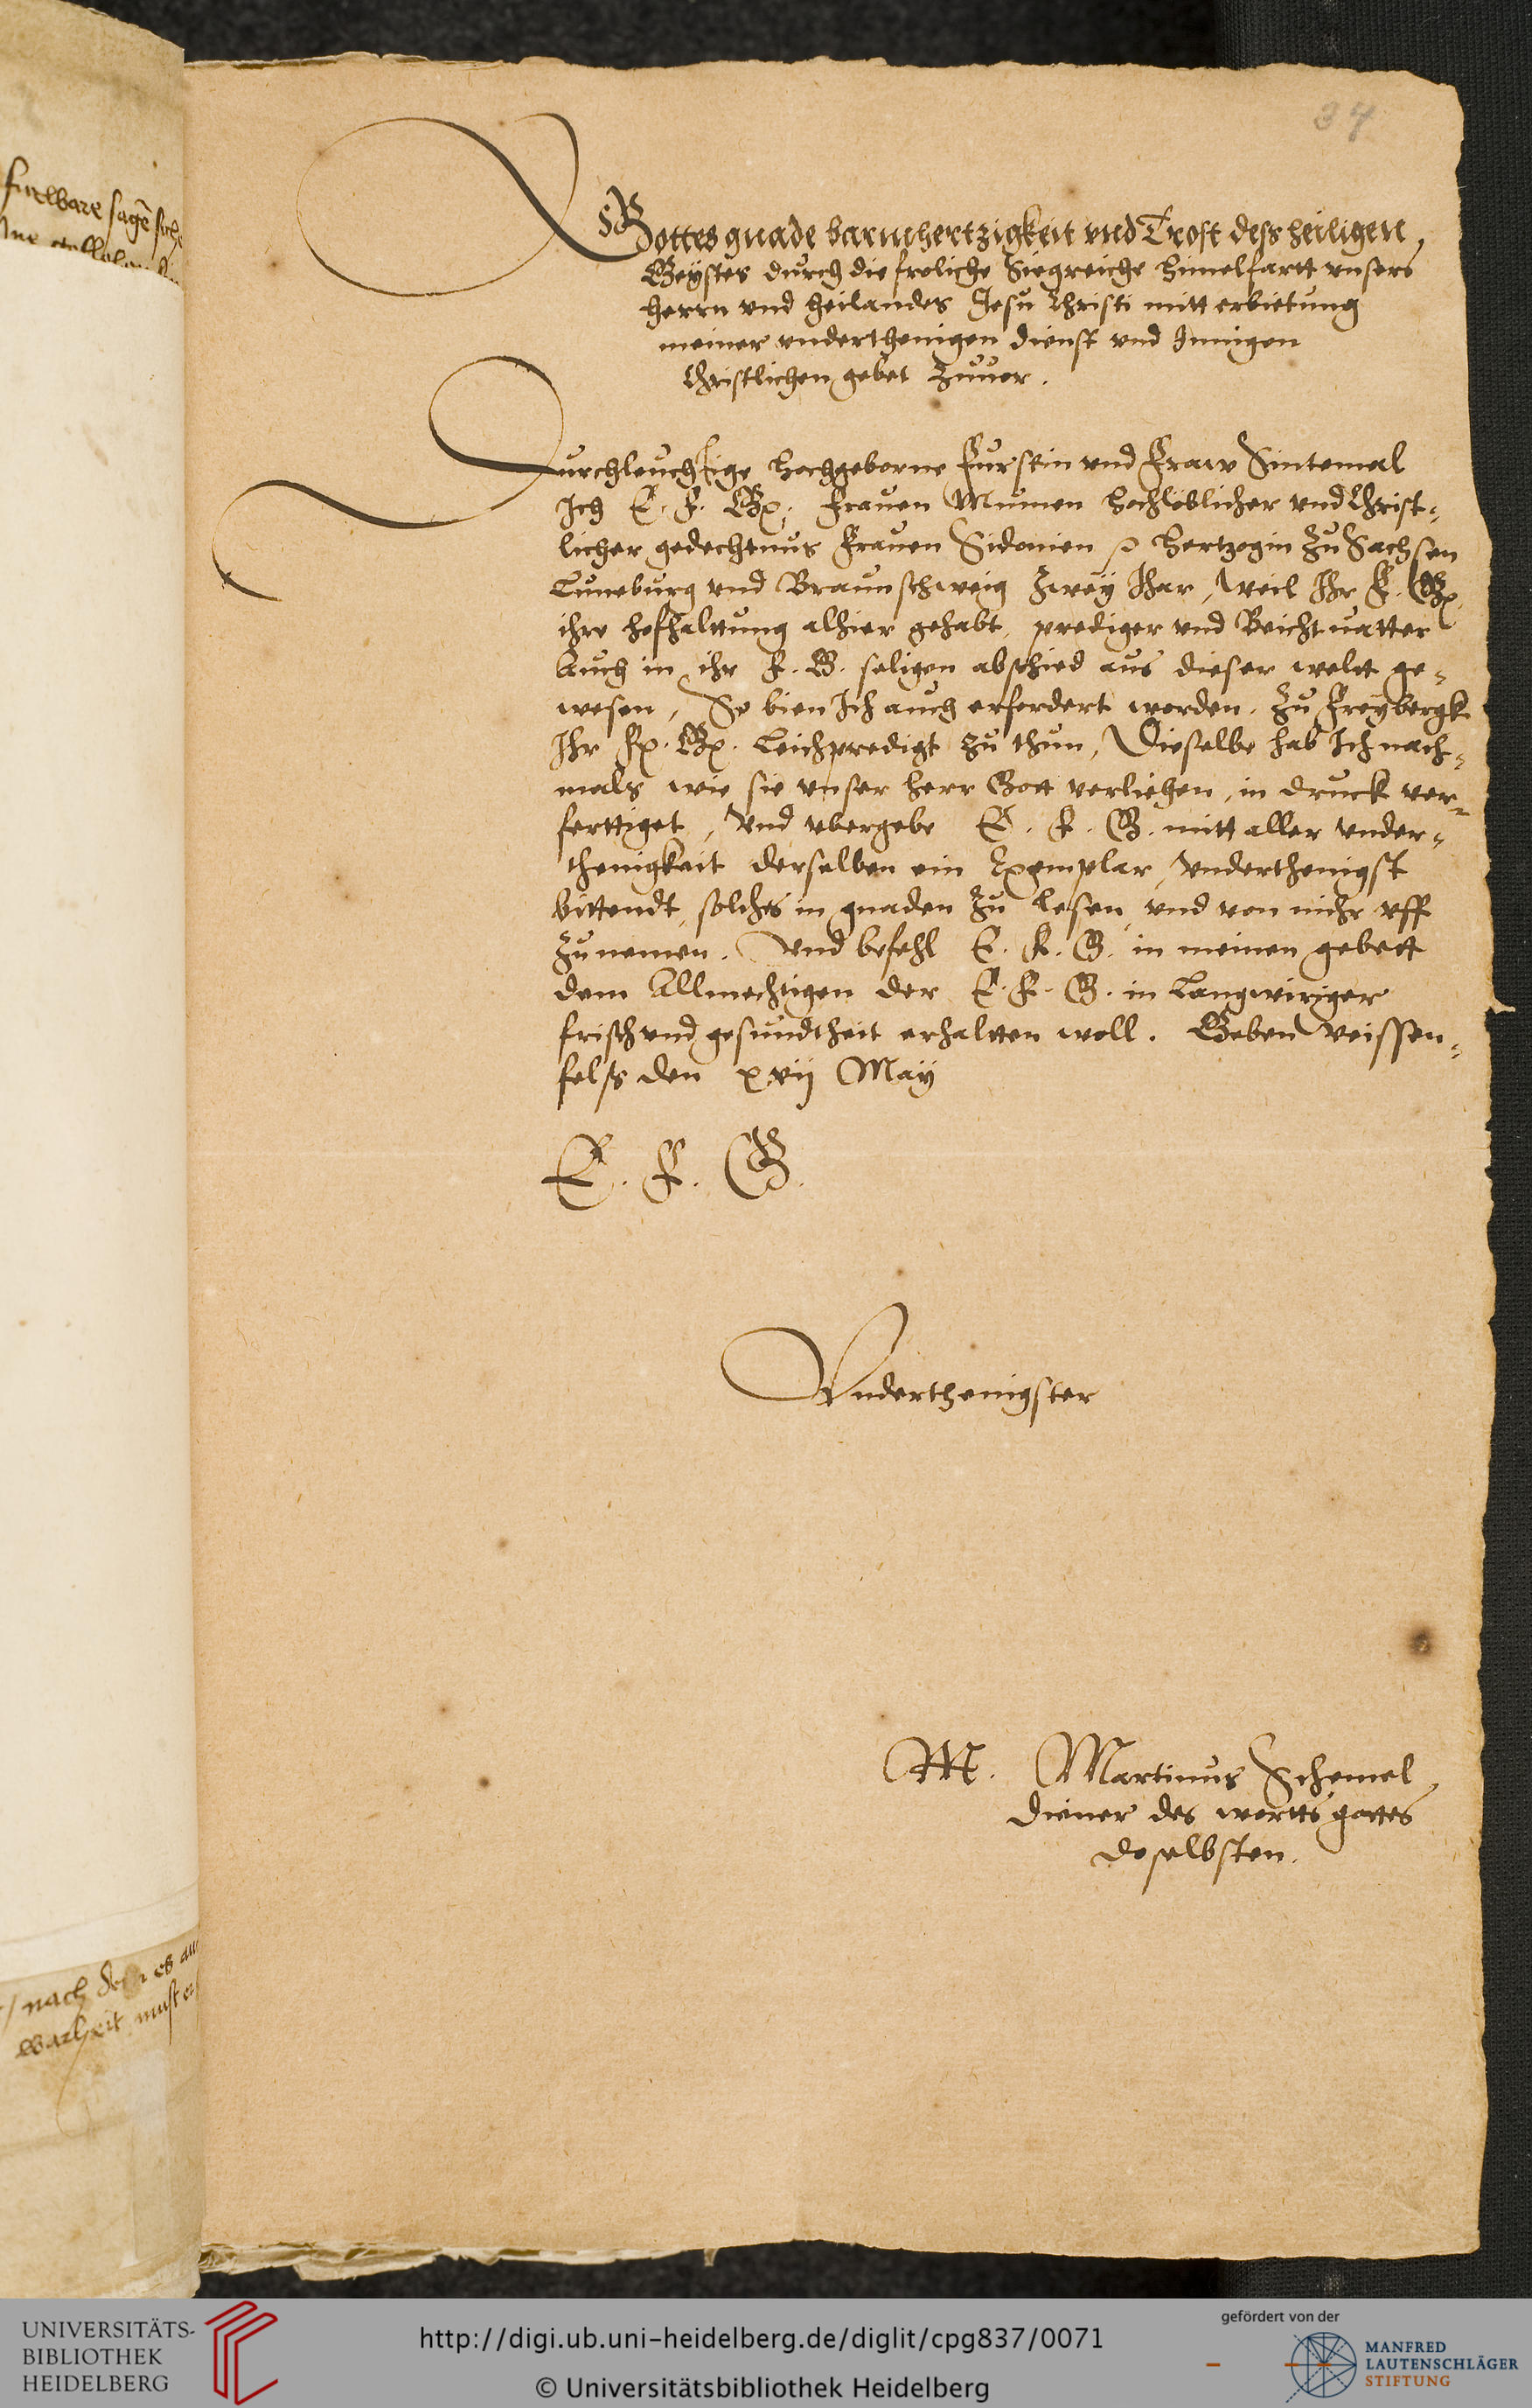 34
Gottes gnade barmhertzigkeit vnd Trost dess heiligen
Geystes durch die froliche Siegreiche himelfartt vnsers
herrn vnd heilandes Jesu Christi mitt erbietung
meiner vnderthenigen dienst vnd Jnnigen
Christlichen gebet zuuor.
Durchleuchtige hochgeborne furstin vnd Fraw Sintemal
Jch E. F. G. frauen Mumen hochloblicher vnd Christ-
licher gedechtnus frauen Sidonien hertzogin zu Sachsen
Luneburg vnd Braunschweig zwey Jhar, weil Jhr F. G.
ihre hofhalttung alhier gehabt, prediger vnd Beichtuatter
Auch in ihr F. G. seligen abschied aus dieser weltt ge-
wesen, So bien Jch auch erfordert worden, zu Freybergk
Jhr F. G. Leichpredigt zu thun, Dieselbe hab Jch nach-
mals wie sie vnser herr Gott verliehen, in druck ver-
ferttiget, Vnd vbergebe E. F. G. mitt aller vnder-
thenigkeit derselben ein Exemplar, vnderthenigst
bittendt, solches in gnaden zu lesen, vnd von mihr vff
zunemen. Vnd befehl E. F. G. in meinen gebett
dem Allmechtigen der E. F. G. in langwiriger
frisch vnd gesundtheit erhaltten woll. Geben Weissen-
felss den xvij May
E. F. G.
Vnderthenigster
M. Martinus Schemel
diener des wortts gottes
doselbsten.
furwBare sagē
/ nach dem es
warheit must er
UNIVERSITÄTS-
BIBLIOTHEK
HEIDELBERG
http://digi.ub.uni-heidelberg.de/diglit/cpg837/0071
© Universitätsbibliothek Heidelberg
gefördert von der
MANFRED
LAUTENSCHLÄGER
STIFTUNG